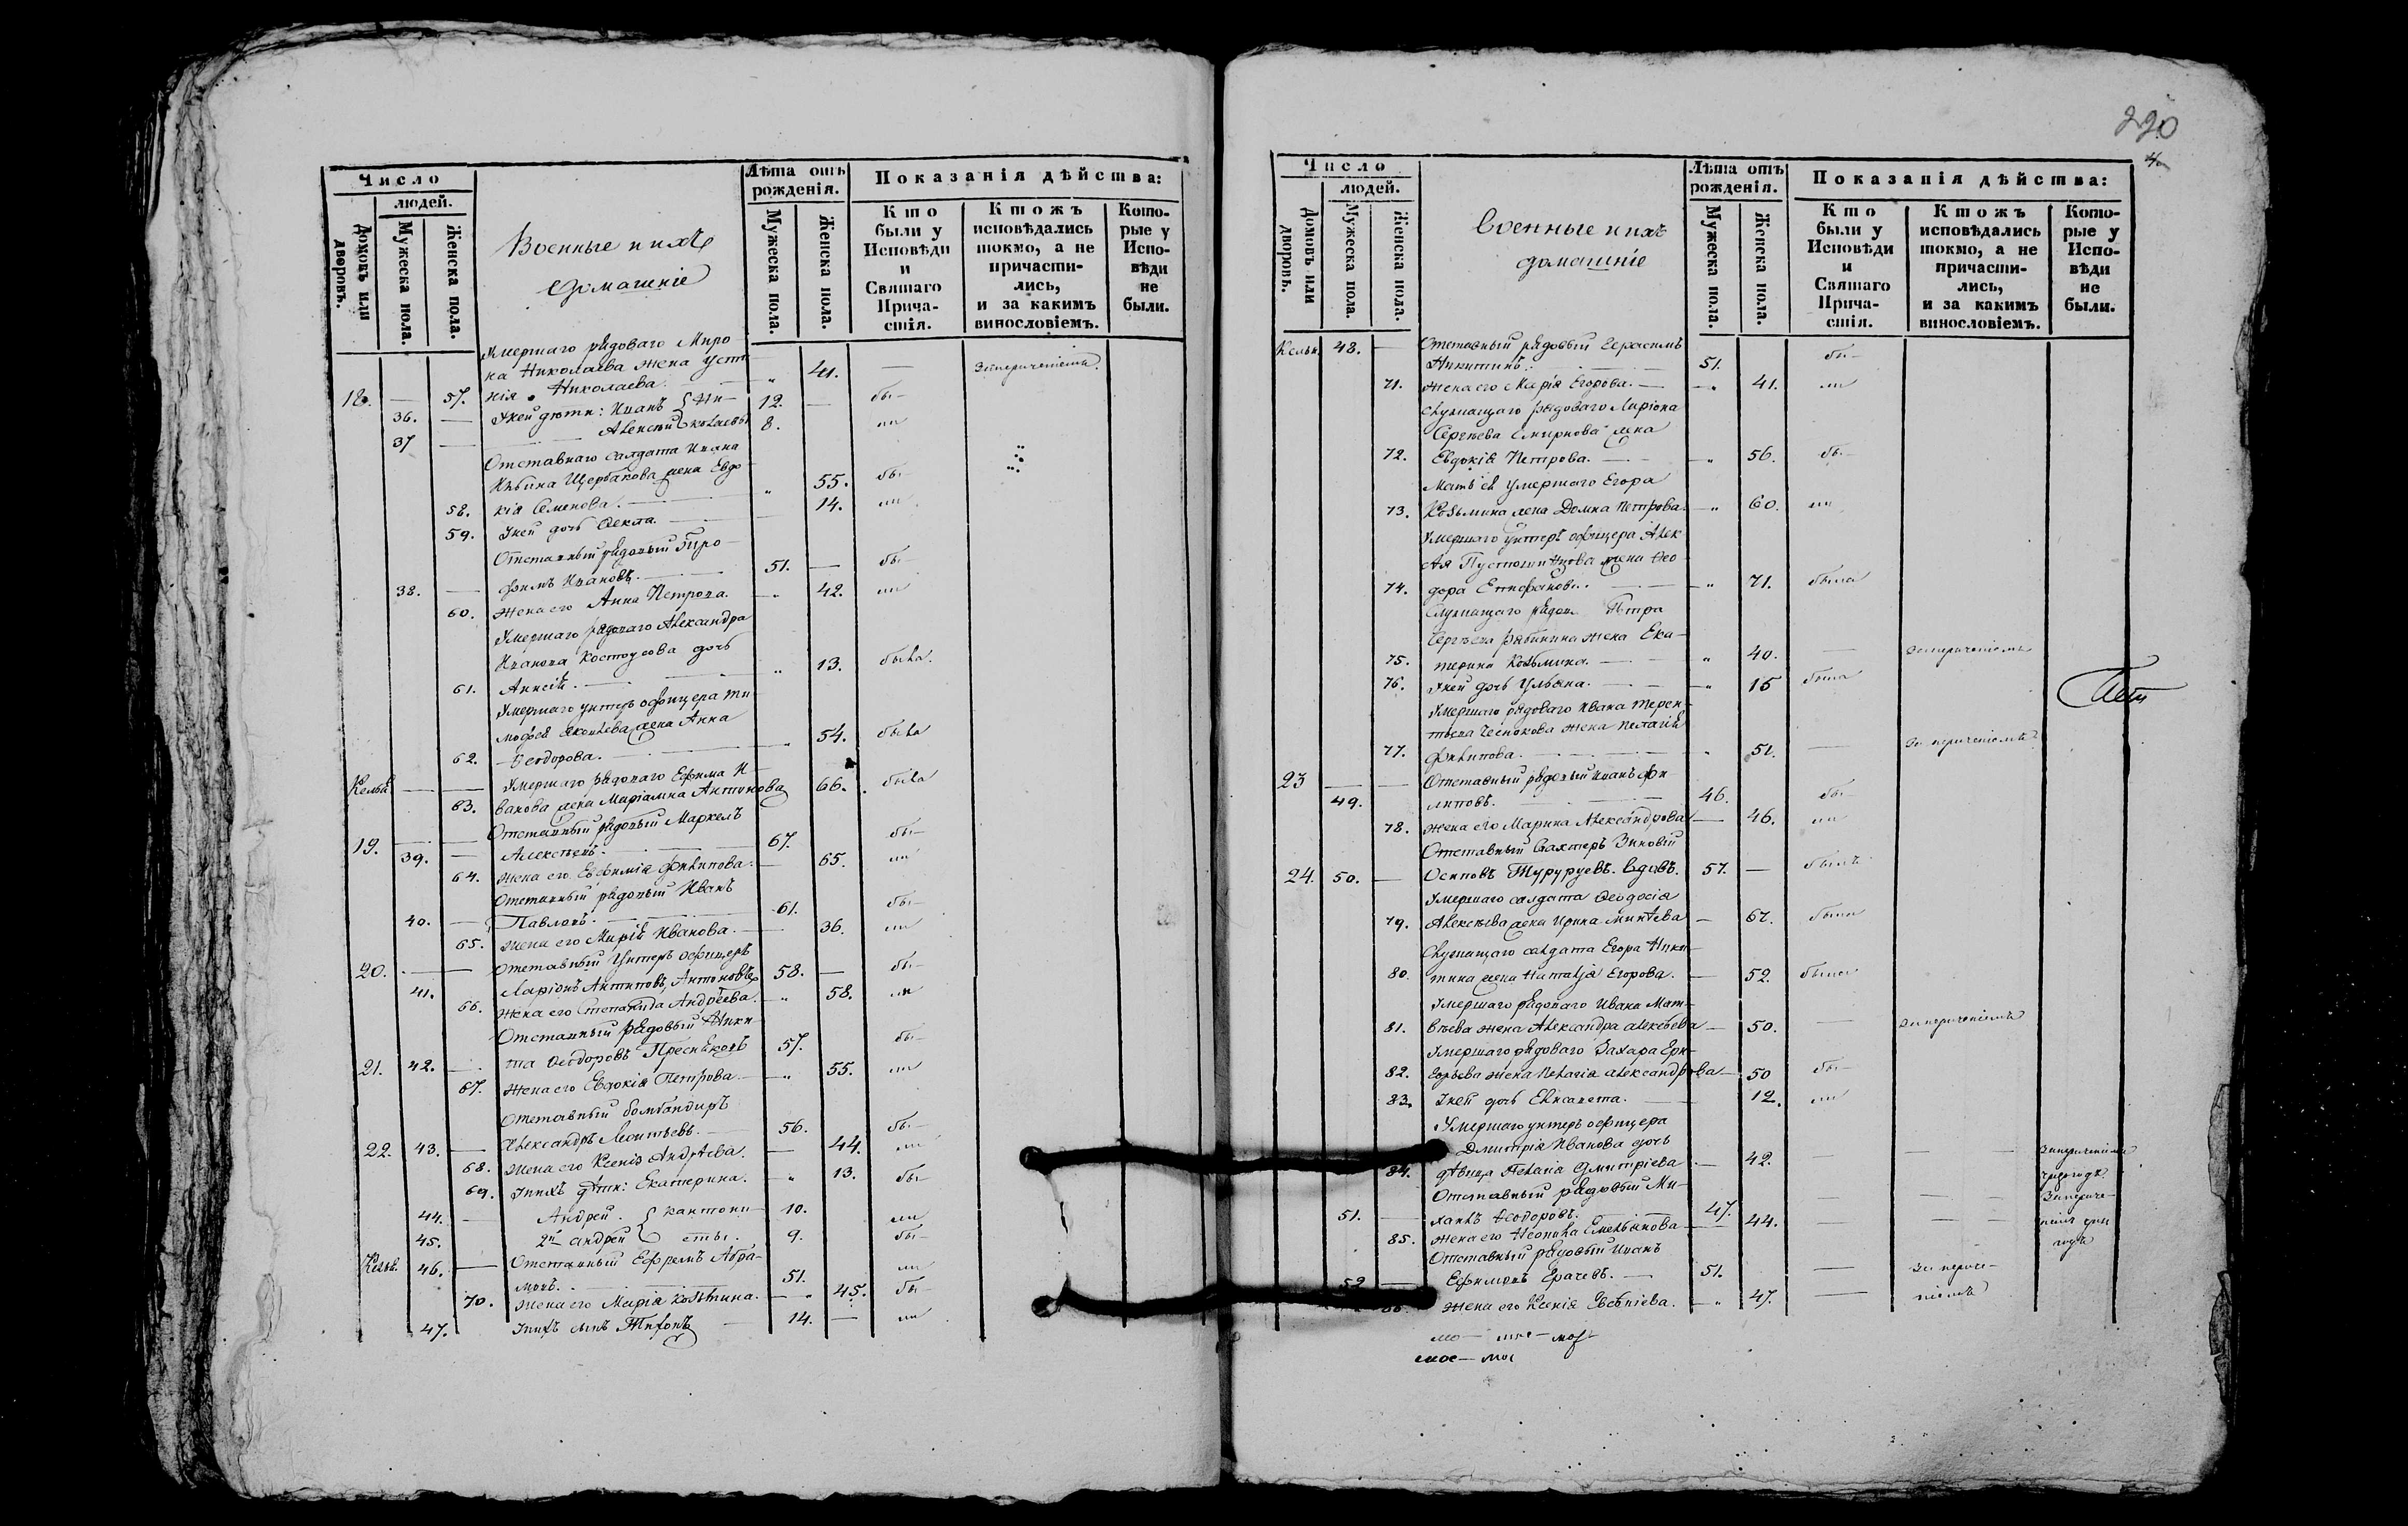 Число
людей.
Домовъ или дворовъ.
Мужеска пола.
Женска пола.
Военные и ихъ
домашніе
Лѣта отъ рожденія.
Мужеска пола.
Женска пола.
Показанія дѣйства:
Кто были у Исповѣди и Святаго Причастія.
Ктожъ исповѣдались токмо, а не причастились, и за какимъ винословіемъ.
Которые у Исповѣди не были.
Умершаго рядоваго Миро
на Николаева жена Усти
18. — 57. нія Николаева. — „ 41. —
36. — Уней дѣти: Иванъ { Ни- 12. — бы-
37 — Алексѣй { колаевы 8.
Отставнаго салдата Ивана
Щербакова жена Евдо
58. кія Семенова. — „ 55. бы-
59. Уней дочь Фекла. — 14.
Отставный рядовый Тро-
38. — фимъ Ивановъ. — 51. — бы-
60. жена его Анна Петрова. — „ 42.
Умершаго рядоваго Александра
Иванова Костоусова дочь
61. Анисія. — „ 13. была.
Умершаго унтеръ офицера Ти-
мофея Яковлева жена Анна
62. Феодорова. — „ 54. была
Умершаго рядоваго Ефима И-
63. ванова жена Маріамна Антонова 66. была
Отставный рядовый Маркелъ
19. 39. — Алексѣевъ. — 67. бы-
64. жена его Евфимія Филипова. — 65.
Отставный рядовый Иванъ
40. — Павловъ. — 61. бы-
65. жена его Марія Иванова. — 36.
20. — — Отставный Унтеръ офицеръ
41. Ларіонъ Антиповъ Антоновъ 58. — бы-
66. жена его Степанида Андрѣева. — „ 58.
Отставный рядовый Ники-
21. 42. — та Феодоровъ Пресняковъ 57. бы-
67. жена его Евдокія Петрова. — „ 55.
Отставный бомбандиръ
22. 43. — Александръ Леонтьевъ. — 56. бы-
68. жена его Ксенія Андрѣева. — 44.
69. Унихъ дѣти: Екатерина. — „ 13. бы-
44. — Андрей. { кантони- 10.
45. 2й Андрей { сты. 9. бы-
46. — Отставный Ефремъ Абра-
мовъ. — 51.
70. жена его Марія Козмина. — „ 45. бы-
47. Унихъ сынъ Тихонъ — 14. —
220
Число
людей.
Домовъ или дворовъ.
Мужеска пола.
Женска пола.
Военные и ихъ
домашніе
Лѣта отъ рожденія.
Мужеска пола.
Женска пола.
Показанія дѣйства:
Кто были у Исповѣди и Святаго Причастія.
Ктожъ исповѣдались токмо, а не причастились, и за какимъ винословіемъ.
Которые у Исповѣди не были.
48. — Отставный рядовый Герасимъ
Никитинъ. — 51. бы-
71. жена его Марія Егорова. — „ 41.
Служащаго рядоваго Ларіона
Сергѣева Смирнова жена
72. Евдокія Петрова. — „ 56. бы-
Мать ея умершаго Егора
73. Козьмина жена Домна Петрова. „ 60.
Умершаго Унтеръ офицера Алек
жена Фео
74. дора Епифанова. — „ 71. была
Служащаго рядов. Петра
Сергѣева Рябинина жена Ека-
75. терина Козьмина. — „ 40. —
76. Уней дочь Ульяна. — „ 15 была
Умершаго рядоваго Ивана Терен-
тьева Чеснокова жена Пелагія
77. Филипова. — „ 51. —
23 — — Отставный рядовый Иванъ Фи-
49. липовъ. — 46. бы-
78. жена его Марина Александрова — 46.
Отставный Вахтеръ Зиновій
24. 50. — Осиповъ Туруруевъ. вдовъ. 57. — былъ
Умершаго салдата Феодосія
79. Алексѣева жена Ирина — 67. была
Служащаго салдата Егора Ники-
80. тина жена Наталья Егорова. — 52. была
Умершаго рядоваго Ивана Мат-
81. вѣева жена Александра Алексѣева — 50. —
Умершаго рядоваго Захара Гри-
82. горьева жена Пелагія Александрова — 50 бы-
83. Уней дочь Елисавета. — 12.
Умершаго унтеръ офицера
Дмитрія Иванова дочь
84. дѣвица Пелагія Дмитріева — 42. — —
Отставный рядовый Ми-
51. — хаилъ Феодоровъ. — 47. — —
85. жена его Неонила Емельянова — 44. — —
Отставный рядовый Иванъ
52 — Ефимовъ Грачевъ. — 51. —
86. жена его Ксенія Евсѣвіева. — „ 47. —